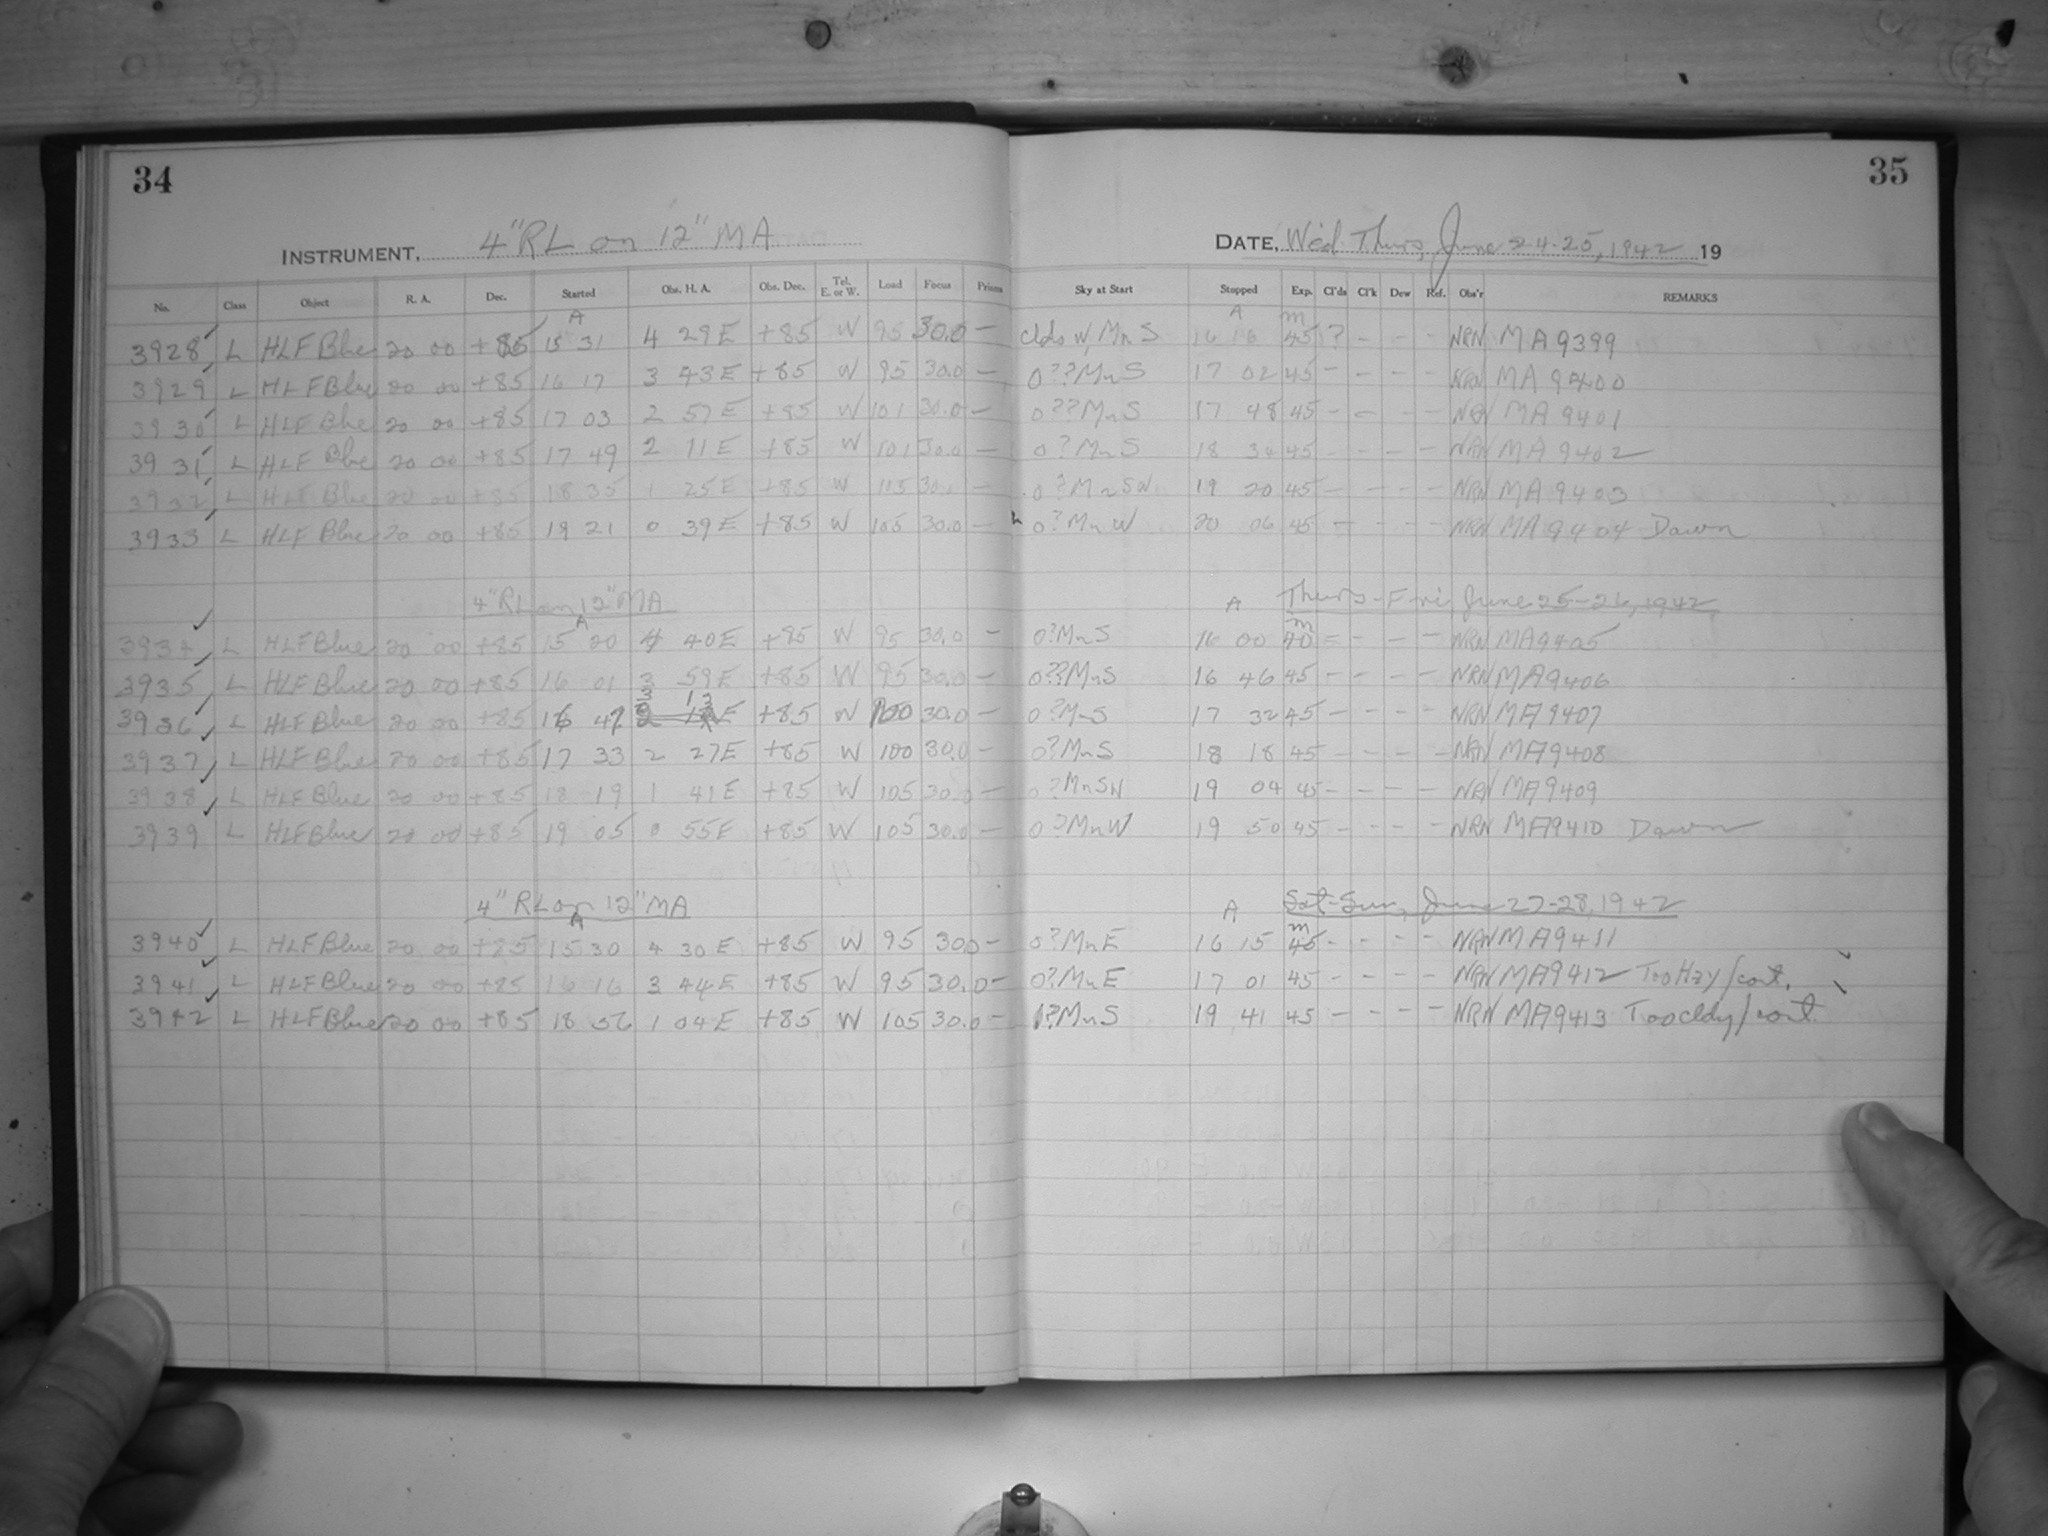 34
35
INSTRUMENT, 4"RL on 12" MA
DATE, Wed Thurs, June 24-25, 1942 19
No. Class Object R. A. Dec. Started Obs. H. A. Obs. Dec. Tel. E. or W. Load Focus Prisms Sky at Start Stopped Exp. Cl'ds Cl'k Dew Ref. Obs'r REMARKS
A A m
3928 L HLF Blue 20 00 +85 15 31 4 29E +85 W 95 30.0 — clds W, Mn S 16 16 45 ? - - - NRN MA 9399
3929 L HLF Blue 20 00 +85 16 17 3 43E +85 W 95 30.0 — 0??MnS 17 02 45 - - - - NRN MA 9400
3930 L HLF Blue 20 00 +85 17 03 2 57E +85 W 101 30.0 — 0??MnS 17 48 45 - - - - NRN MA 9401
3931 L HLF Blue 20 00 +85 17 49 2 11E +85 W 101 30.0 — 0?MnS 18 34 45 - - - - NRN MA 9402
3932 L HLF Blue 20 00 +85 18 35 1 25E +85 W 105 30.0 — 0?MnSW 19 20 45 - - - - NRN MA 9403
3933 L HLF Blue 20 00 +85 19 21 0 39E +85 W 105 30.0 — 0?MnW 20 06 45 - - - - NRN MA 9404 Dawn
4"RL on 12"MA A Thurs-Fri June 25-26, 1942
A m
3934 L HLF Blue 20 00 +85 15 20 4 40E +85 W 95 30.0 — 0?MnS 16 00 40 - - - - NRN MA9405
3935 L HLF Blue 20 00 +85 16 01 3 59E +85 W 95 30.0 — 0??MnS 16 46 45 - - - - NRN MA9406
3936 L HLF Blue 20 00 +85 16 47 3 13E +85 W 100 30.0 — 0?MnS 17 32 45 - - - - NRN MA9407
3937 L HLF Blue 20 00 +85 17 33 2 27E +85 W 100 30.0 — 0?MnS 18 18 45 - - - - NRN MA9408
3938 L HLF Blue 20 00 +85 18 19 1 41E +85 W 105 30.0 — 0?MnSW 19 04 45 - - - - NRN MA9409
3939 L HLF Blue 20 00 +85 19 05 0 55E +85 W 105 30.0 — 0?MnW 19 50 45 - - - - NRN MA9410 Dawn
4" RL on 12" MA A Sat-Sun, June 27-28, 1942
A m
3940 L HLF Blue 20 00 +85 15 30 4 30E +85 W 95 30.0 — 0?MnE 16 15 45 - - - - NRN MA9411
3941 L HLF Blue 20 00 +85 16 16 3 44E +85 W 95 30.0 — 0?MnE 17 01 45 - - - - NRN MA9412 Too Hzy/cont.
3942 L HLF Blue 20 00 +85 18 56 1 04E +85 W 105 30.0 — 1?MnS 19 41 45 - - - - NRN MA9413 Too cldy/cont